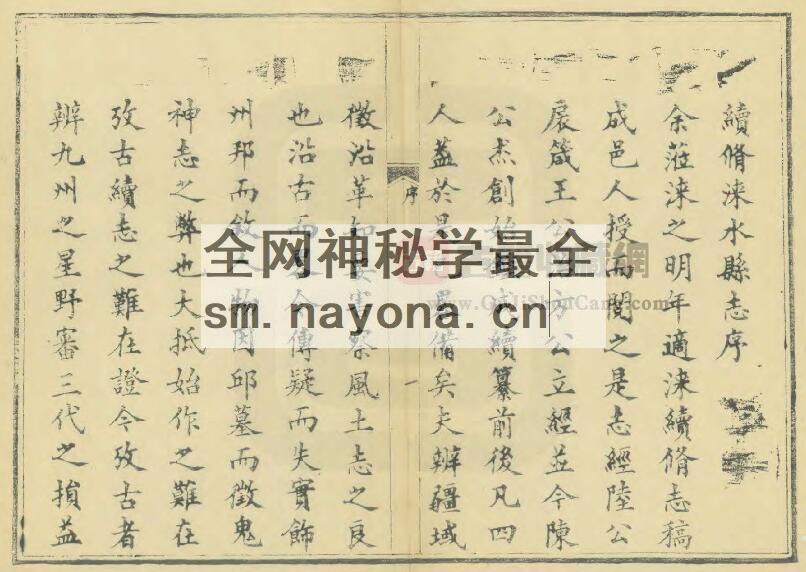 續脩淶水縣志序
余蒞淶之明年適淶續脩志稿
成邑人授而閱之是志經陸公
展箴王公方公立經並今陳
公杰創續纂前後凡四
人蓋於是備矣夫辨疆域
序
一
徵沿革察風土志之良
也沿古而今傳疑而失實飾
州邦而敘人物因邱墓而徵鬼
神志之弊也大抵始作之難在
攷古續志之難在證今攷古者
辨九州之星野審三代之損益
全网神秘学最全
sm. nayona. cn